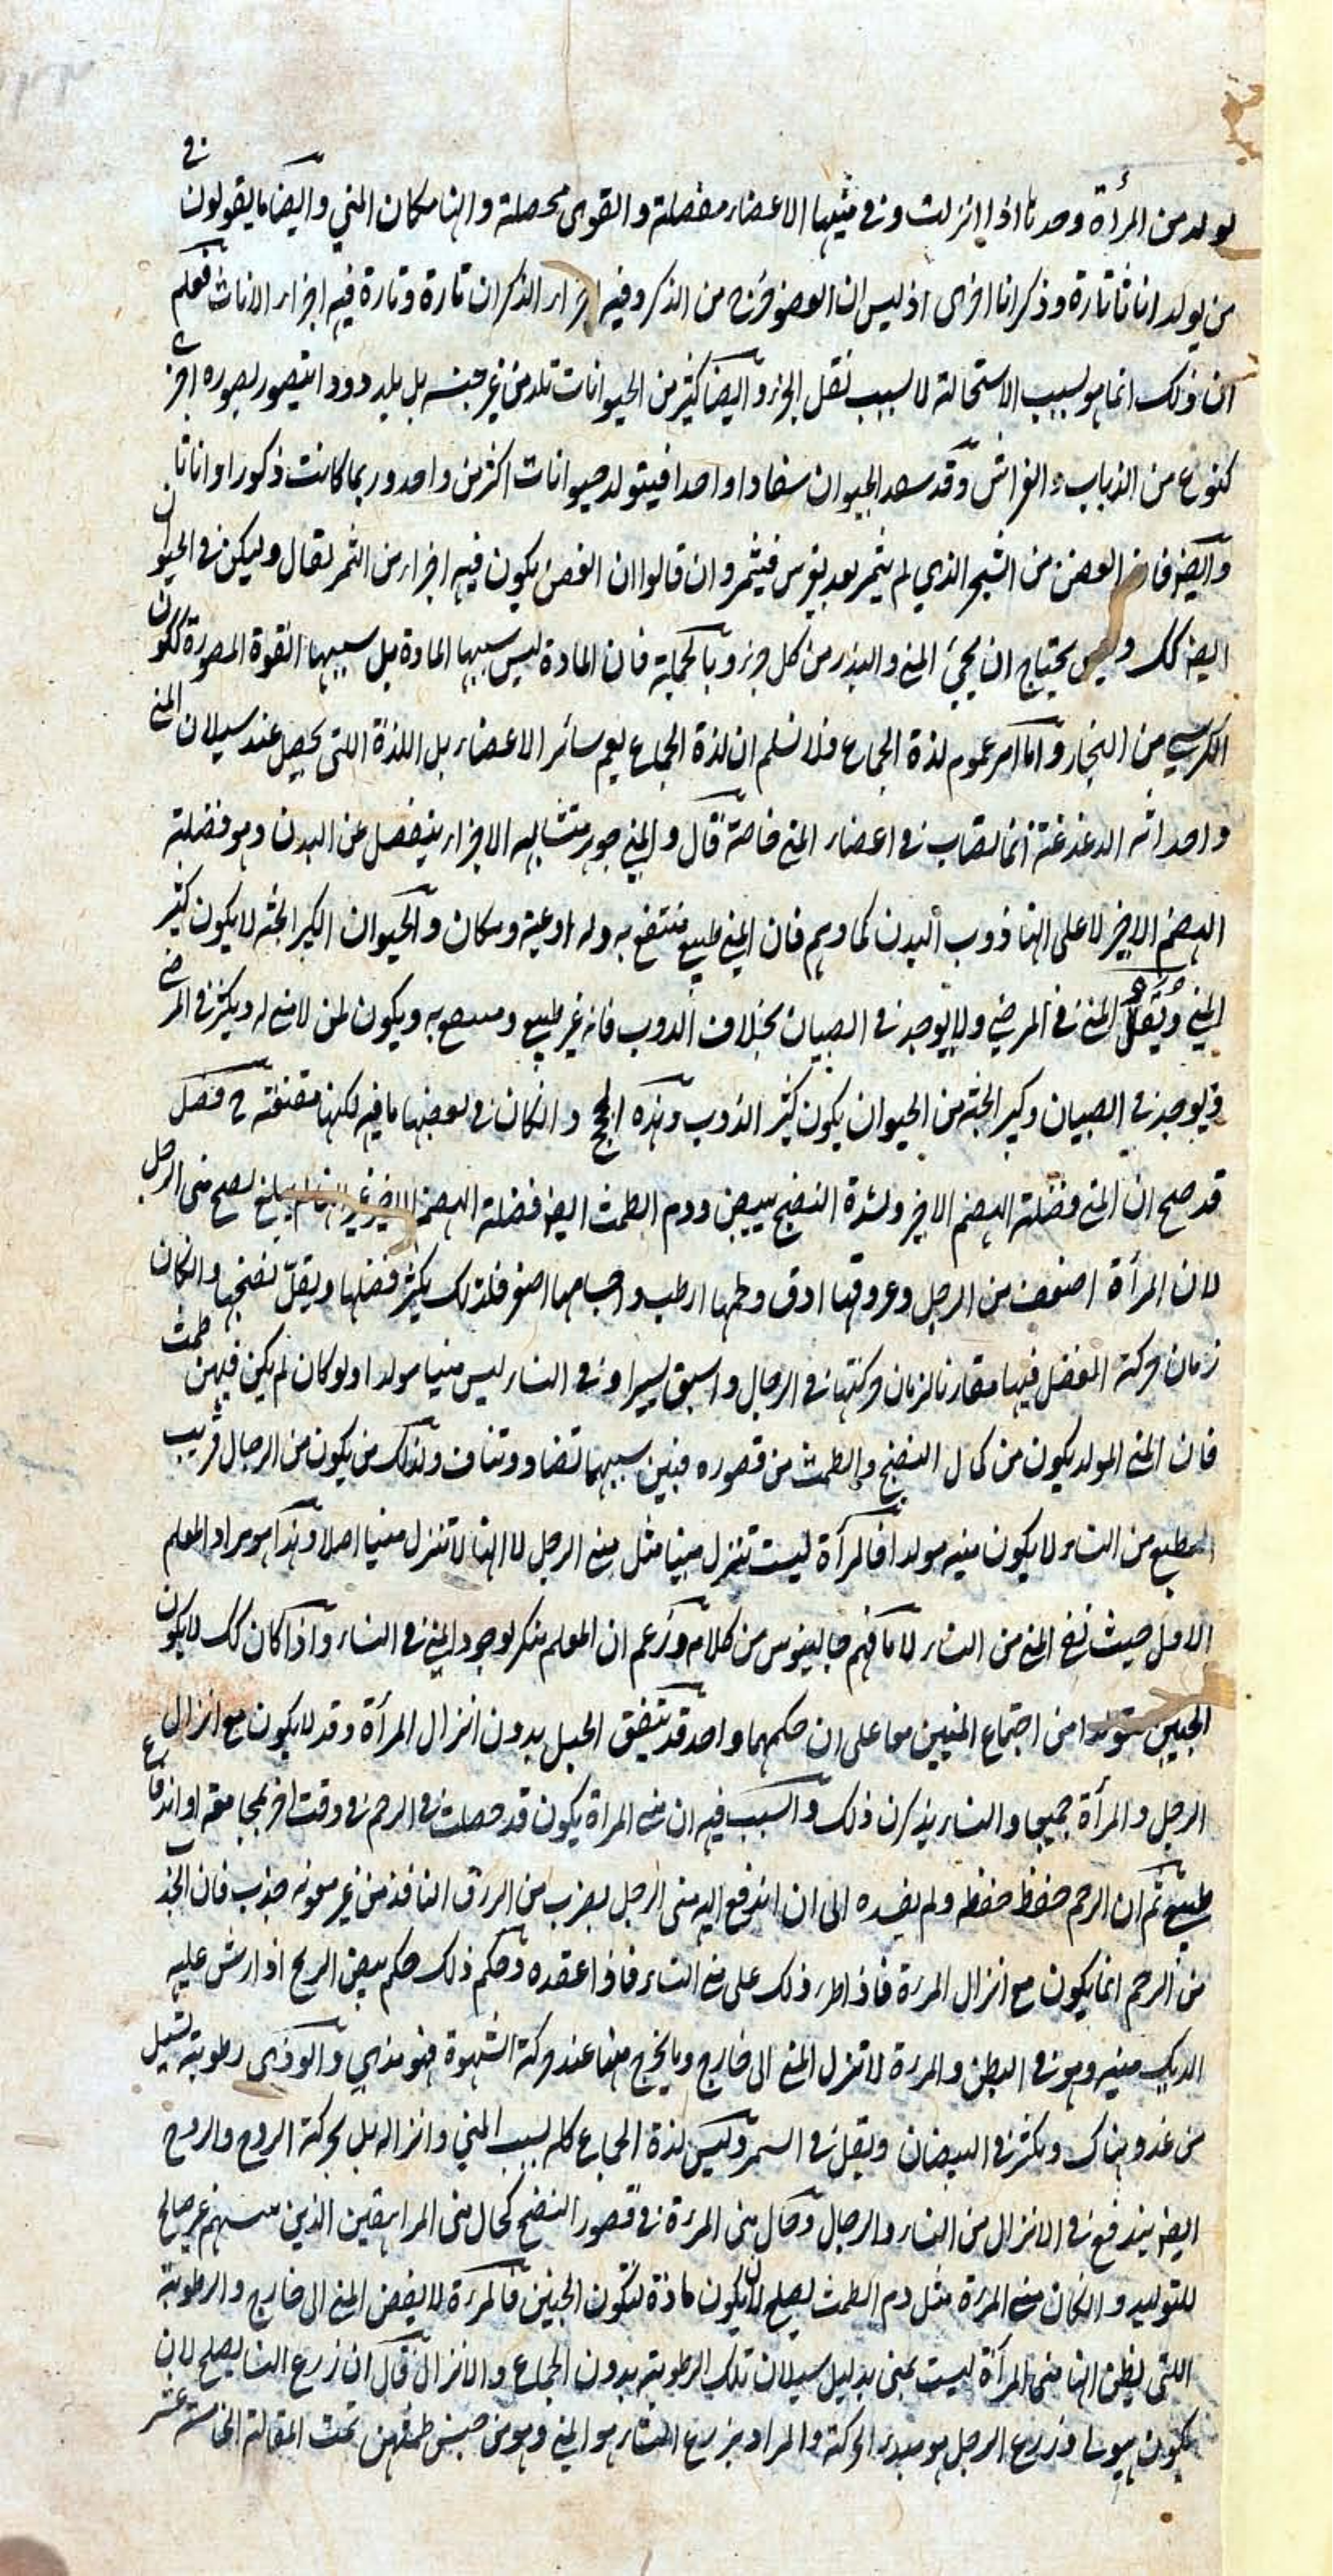 لو لد من المرأة وحدها اذا انزلت وفى منيها الاعضاء مفصلة والقوى محصلة والها مكان المني وايضا ما يقولون فى
من يولد اناثا تارة وذكرانا اخرى اذ ليس ان العضو خرج من الذكر وفيه اجزاء الذكران تارة وتارة فيه اجزاء الاناث فعلم
ان ذلك انما هو لسبب الاستحالة لا لسبب نقل الجزء وايضا كثير من الحيوانات تلد من غير جنسه بل يلد دودا يتصور بصورة اخرى
كنوع من الذباب والفراش وقد يسفد الحيوان سفادا واحدا فيتولد حيوانات اكثر من واحد وربما كانت ذكورا واناثا
وايضا فان الغصن من الشجر الذي لم يثمر بعد يغرس فيثمر وان قالوا ان الغصن يكون فيه اجزاء من الثمر يقال وليكن فى الحيوان
ايضا كك وليس يحتاج ان يجئ المنى والبذر من كل جزء وبالجملة فان المادة ليس سببها المادة بل سببها القوة المصورة ككون
الكرسي من النجار واما امر عموم لذة الجماع فلا نسلم ان لذة الجماع يعم سائر الاعضاء بل اللذة اللتى يحصل عند سيلان المنى
واحداثه الدغدغة انما يصاب فى اعضاء المنى خاصة قال والمنى جوهر متشابه الاجزاء ينفصل عن البدن وهو فضلة
الهضم الاخير لا على انها ذوب البدن كما وهم فان المنى طبيعي منتفع به وله اوعية ومكان والحيوان الكبير الجثة لا يكون كثير
المنى ويقل المنى فى المرضى ولا يوجد فى الصبيان بخلاف الذوب فانه غير طبيعي و به ويكون لمن لا منى له ويكثر فى المرضى
ويوجد فى الصبيان وكبير الجثة من الحيوان يكون كثير الذوب وهذه الحجج وان كان فى بعضها ما فيه لكنها مقنعة فى فصل
قد صح ان المنى فضلة الهضم الاخير ولشدة النضج يبيض ودم الطمث ايضا فضلة الهضم الاخير غير انها لم يبلغ نضج منى الرجل
لان المرأة اضعف من الرجل وعروقها ادق ولحمها ارطب واجسامها اصغر فلذلك يكثر فضلها ويقل نضجها وان كان
زمان حركة الفضل فيها مقارنا لزمان حركتها فى الرجال واسبق يسيرا وفى النساء ليس منيا مولدا ولو كان لم يكن فيهن طمث
فان المنى المولد يكون من كمال النضج والطمث من قصوره فبين سببيهما تضاد وتناف ولذلك من يكون من الرجال قريب
الطبع من النساء لا يكون منيه مولدا فالمرأة ليست تنزل منيا مثل منى الرجل لا انها لا تنزل منيا اصلا وهذا هو مراد المعلم
الاول حيث نفى المنى من النساء لا ما فهم جالينوس من كلامه وزعم ان المعلم منكر لوجود المنى فى النساء واذا كان كك لا يكون
الجنين متولدا من اجتماع المنيين معا على ان حكمهما واحد قد يتفق الحبل بدون انزال المرأة وقد لا يكون مع انزال
الرجل والمرأة جميعا والنساء يذكرن ذلك والسبب فيه ان منى المراة يكون قد حصلت فى الرحم فى وقت اخر لمجامعة او اندفاع
طبيعي ثم ان الرحم حفظ حفظه ولم يفسده الى ان اندفع اليه منى الرجل بضرب من الزرق النافذ من غير معونة جذب فان الجذب
من الرحم انما يكون مع انزال المرءة فاذا طرء ذلك على منى النساء فاذا عقده وحكم ذلك حكم بيض الريح اذا رش عليه
الديك منيه وهو فى البطن والمرءة لا تنزل المنى الى خارج وما يخرج منها عند حركة الشهوة فهو مذي والوذى رطوبة تسيل
من غدد هناك وتكثر فى البيضان ويقل فى السمر وليس لذة الجماع كله لسبب المني وانزاله بل بحركة الروح والروح
ايضا يندفع فى الانزال من النساء والرجال وحال منى المرءة فى قصور النضج كحال منى المراهقين الذين منيهم غير صالح
للتوليد وان كان منى المرءة مثل دم الطمث يصلح لان يكون مادة لتكون الجنين فالمرءة لا يفيض المنى الى خارج والرطوبة
اللتى يظن انها منى المرأة ليست بمنى بدليل سيلان تلك الرطوبة بدون الجماع والانزال قال ان زرع النساء يصلح لان
يكون هيولى وزرع الرجل هو مبدء الحركة والمراد بزرع النساء هو المنى وهو من جنس طمثهن تمت المقالة الخامسة عشر